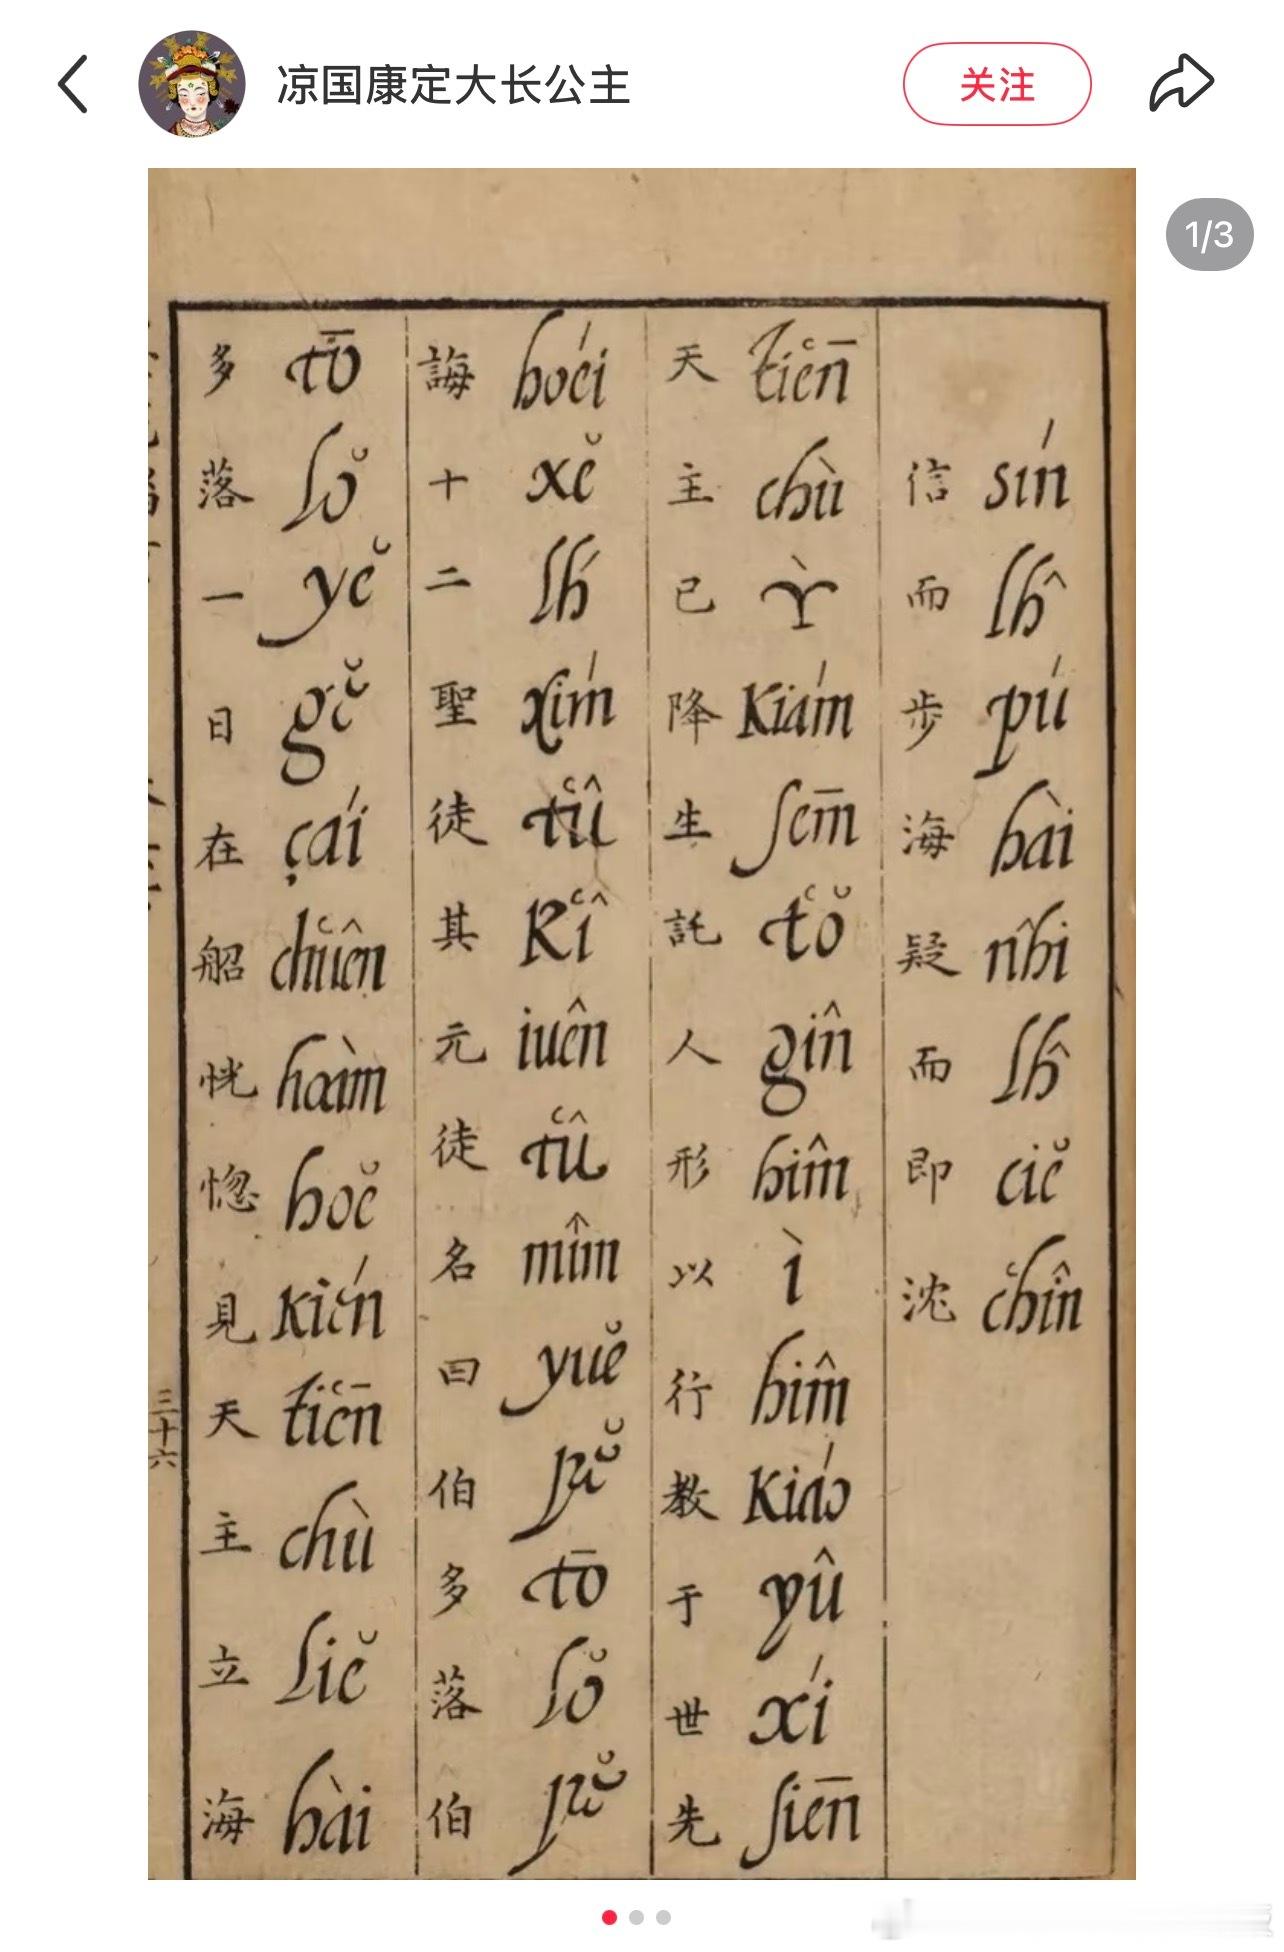 凉国康定大长公主
关注
1/3
信而步海疑而即沈
sín lĥ pú hài nĥi lĥ ciĕ c̔hîn
天主已降生託人形以行教于世先
t̔iēn chù Ỳ Kiám sēm t̔ŏ gîn hîm ì hîm Kiáo yû xí siēn
誨十二聖徒其元徒名曰伯多落伯
hoéi xĕ lh́ xím t̔û K̔î iuên t̔û mîm yuĕ pĕ tō lŏ pĕ
多落一日在船恍惚見天主立海
tō lŏ yĕ gĕ çái c̔huên hoàm hoĕ Kién t̔iēn chù liĕ hài
三十六